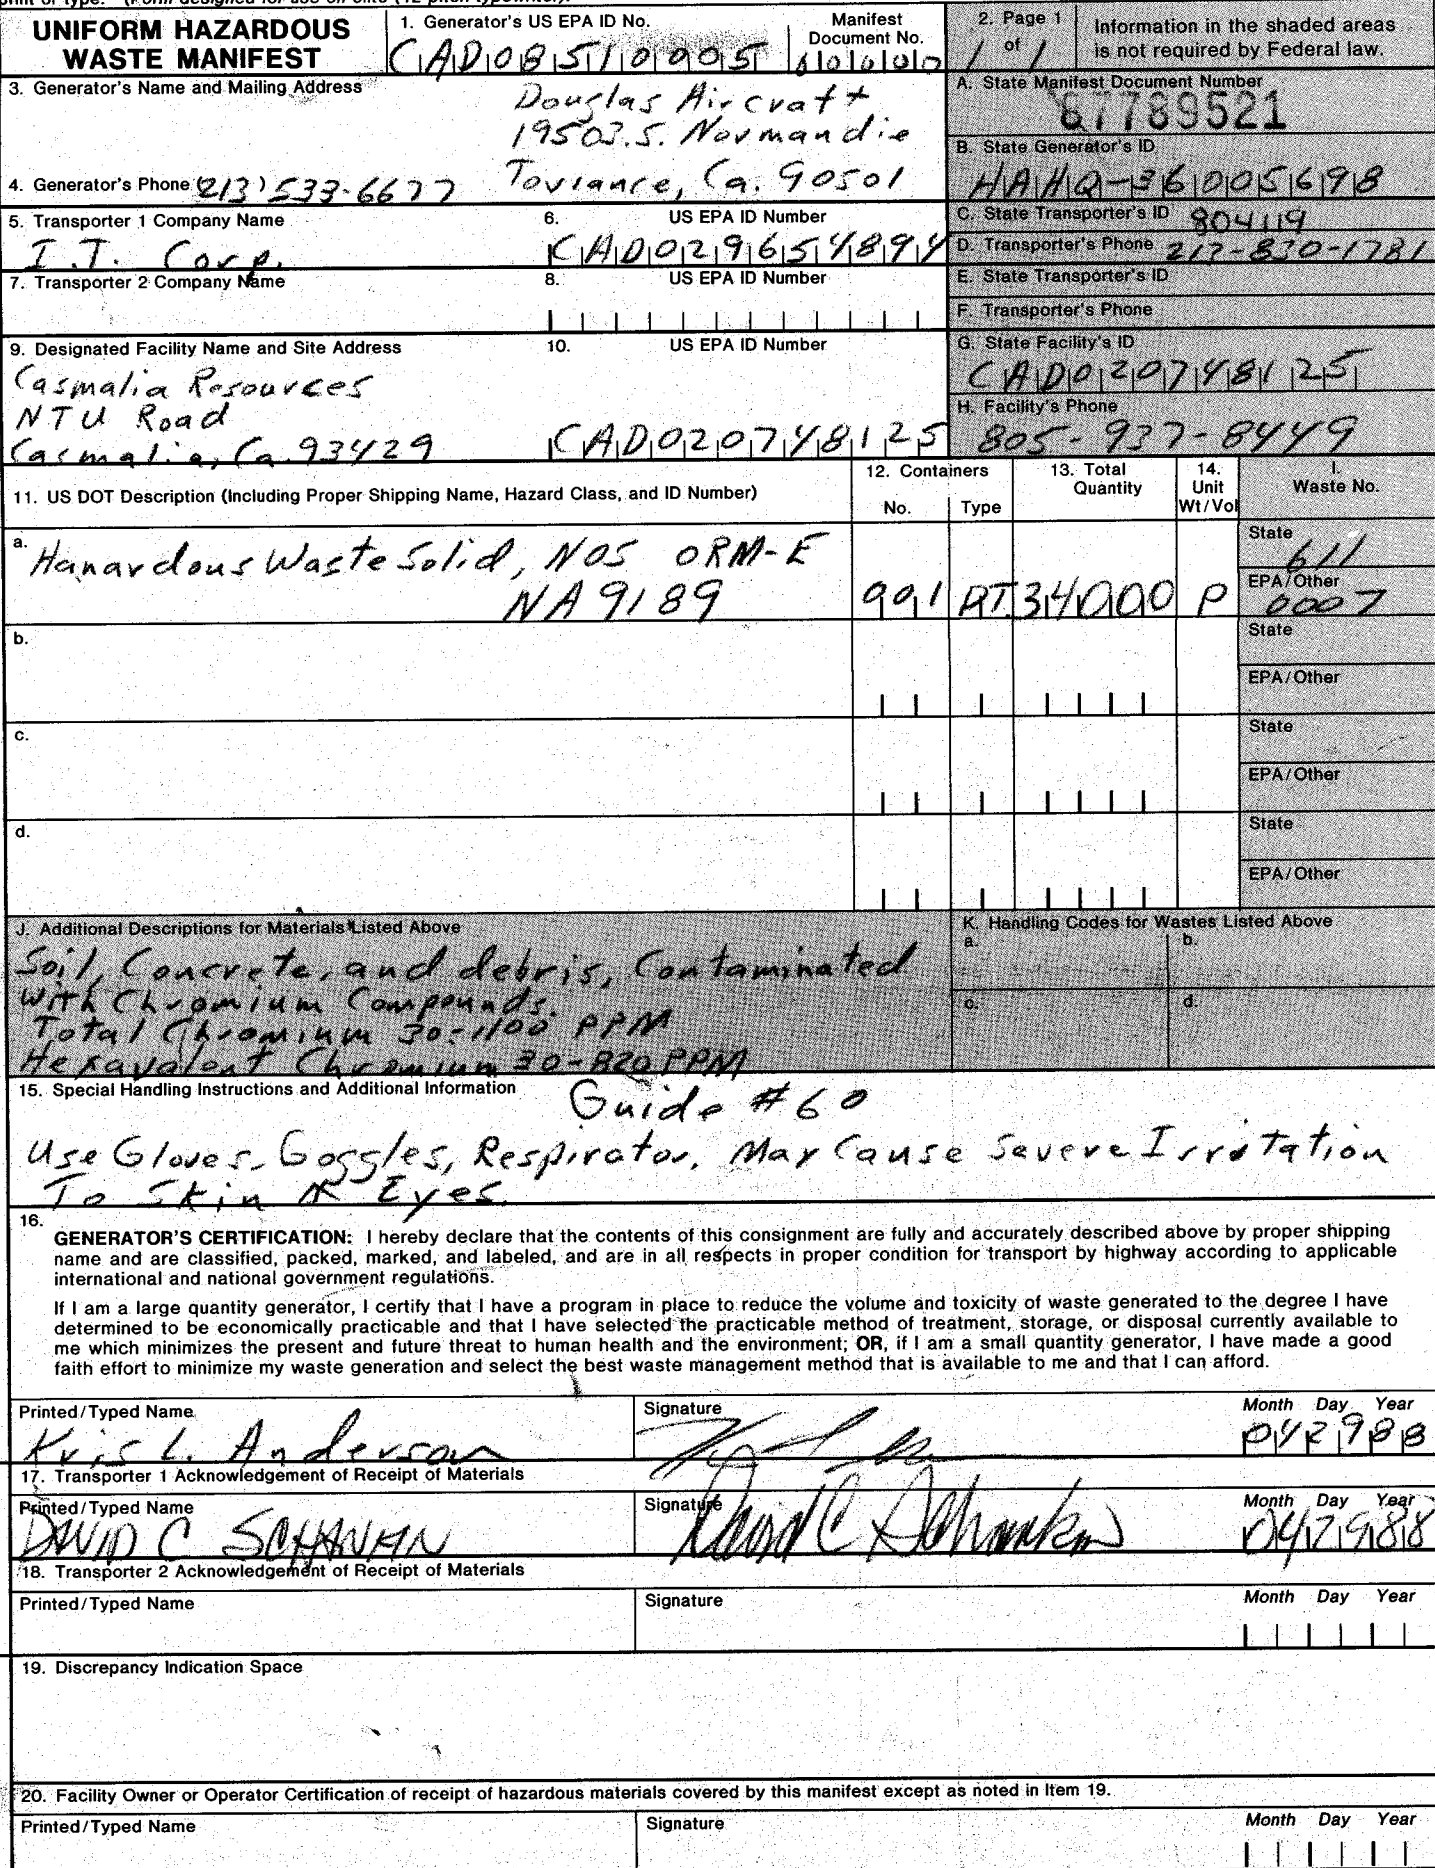 print or type. (Form designed for use on elite (12-pitch typewriter).
UNIFORM HAZARDOUS
WASTE MANIFEST
1. Generator's US EPA ID No.
CAD08510005
Manifest
Document No.
2. Page 1
of 1
1
Information in the shaded areas
is not required by Federal law.
3. Generator's Name and Mailing Address
Douglas Aircraft
19503.S. Normandie
Torrance, Ca. 90501
A. State Manifest Document Number
87789521
B. State Generator's ID
HAHQ-36005698
4. Generator's Phone (213) 533-6677
5. Transporter 1 Company Name
I.T. Corp.
6. US EPA ID Number
CAD029654894
C. State Transporter's ID 804119
D. Transporter's Phone 213-830-1781
7. Transporter 2 Company Name
8. US EPA ID Number
E. State Transporter's ID
F. Transporter's Phone
9. Designated Facility Name and Site Address
Casmalia Resources
NTU Road
Casmalia, Ca. 93429
10. US EPA ID Number
CAD020748125
G. State Facility's ID
CAD020748125
H. Facility's Phone
805-937-8449
11. US DOT Description (Including Proper Shipping Name, Hazard Class, and ID Number)
12. Containers
No.
Type
13. Total
Quantity
14.
Unit
Wt/Vol
I.
Waste No.
a.
Hanardous Waste Solid, NOS ORM-E
NA9189
001 DT 34000 P
State
611
EPA/Other
D007
b.
State
EPA/Other
c.
State
EPA/Other
d.
State
EPA/Other
J. Additional Descriptions for Materials Listed Above
Soil, Concrete, and debris, Contaminated
With Chromium Compounds.
Total Chrominum 30-1100 PPM
Hexavalent Chromium 30-820 PPM
K. Handling Codes for Wastes Listed Above
a.
b.
c.
d.
15. Special Handling Instructions and Additional Information
Guide #60
Use Gloves, Goggles, Respirator. May Cause Severe Irritation
To Skin & Eyes.
16.
GENERATOR'S CERTIFICATION: I hereby declare that the contents of this consignment are fully and accurately described above by proper shipping
name and are classified, packed, marked, and labeled, and are in all respects in proper condition for transport by highway according to applicable
international and national government regulations.
If I am a large quantity generator, I certify that I have a program in place to reduce the volume and toxicity of waste generated to the degree I have
determined to be economically practicable and that I have selected the practicable method of treatment, storage, or disposal currently available to
me which minimizes the present and future threat to human health and the environment; OR, if I am a small quantity generator, I have made a good
faith effort to minimize my waste generation and select the best waste management method that is available to me and that I can afford.
Printed/Typed Name
Kris L. Anderson
Signature
Month Day Year
042988
17. Transporter 1 Acknowledgement of Receipt of Materials
Printed/Typed Name
DAVID C
Signature
David C
Month Day Year
042988
18. Transporter 2 Acknowledgement of Receipt of Materials
Printed/Typed Name
Signature
Month Day Year
19. Discrepancy Indication Space
20. Facility Owner or Operator Certification of receipt of hazardous materials covered by this manifest except as noted in Item 19.
Printed/Typed Name
Signature
Month Day Year